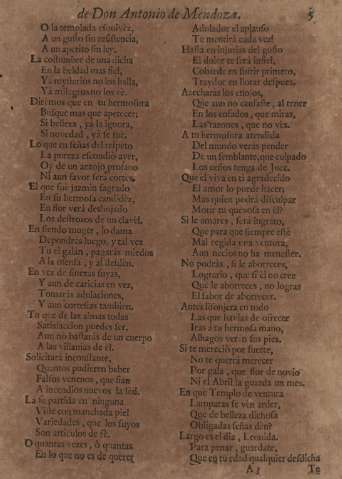 de Don Antonio de Mendoza. 5
O la templada esquivèz,
A un gusto sin resistencia,
A un apetito sin ley.
La costumbre de una dicha
En la beldad mas fiel,
Ya mysterios no los halla,
Ya milagros no los vè.
Diremos que en tu hermosura
Busque mas que apetecer;
Si belleza, ya la ignora,
Si novedad, ya se fue.
Lo que en señas del respeto
La pureza escondiò ayer,
Oy de un arrojo profano
Ni aun favor serà cortès.
El que fue jazmin sagrado
En su hermosa candidèz,
En flor verà deshojado
Los destrozos de un clavel.
En siendo muger, lo dama
Depondràs luego, y tal vez
Tu el galan, pagaràs miedos
A la ofensa, y al desdèn.
En vez de finezas suyas,
Y aun de caricias en vez,
Tomaràs adulaciones,
Y aun cortesias tambien.
Tu que de las almas todas
Satisfaccion puedes ser,
Aun no bastaràs de un cuerpo
A las villanias de èl.
Solicitarà inconstante,
Quantos pudieren beber
Falsos venenos, que fian
A incendios nuevos la sed.
La fè partida en ninguna
Vive con manchada piel
Variedades, que los suyos
Son articulos de fè.
O quantas vezes, ò quantas
En lo que no es de querer
Adulador el aplauso
Te mentirà cada vez!
Hasta en injurias del gusto
El dolor te serà infiel,
Cobarde en sufrir primero,
Traydor en llorar despues.
Azecharàs los enojos,
Que aun no cansaste, al temer
En los enfados, que miras,
Las razones, que no vès.
A tu hermosura atendida
Del mundo veràs pender
De un semblante, que culpado
Los ceños tenga de Juez.
Que el viva en ti agradecido
El amor lo puede hacer;
Mas quien podrà disculpar
Morir tu quexosa en èl?
Si le amares, serà ingrato,
Que para que siempre estè
Mal regida una ventura,
Aun necios no ha menester.
No podràs, si le aborreces,
Lograrlo, que si èl no cree
Que le aborreces, no logras
El sabor de aborrecer.
Antes lisonjera en todo
Las que huvieres de ofrecer
Iras à tu hermosa mano,
Alhagos veràn sus pies.
Si te mereciò por suerte,
No te querrà merecer
Por gala, que flor de novio
Ni el Abril la guarda un mes.
En que Templo de ventura
Lamparas se ven arder,
Que de belleza dichosa
Obligadas señas dèn?
Largo es el dia, Leonida,
Para penar, guardate,
Que en tu edad qualquier desdicha
A 3 Tu